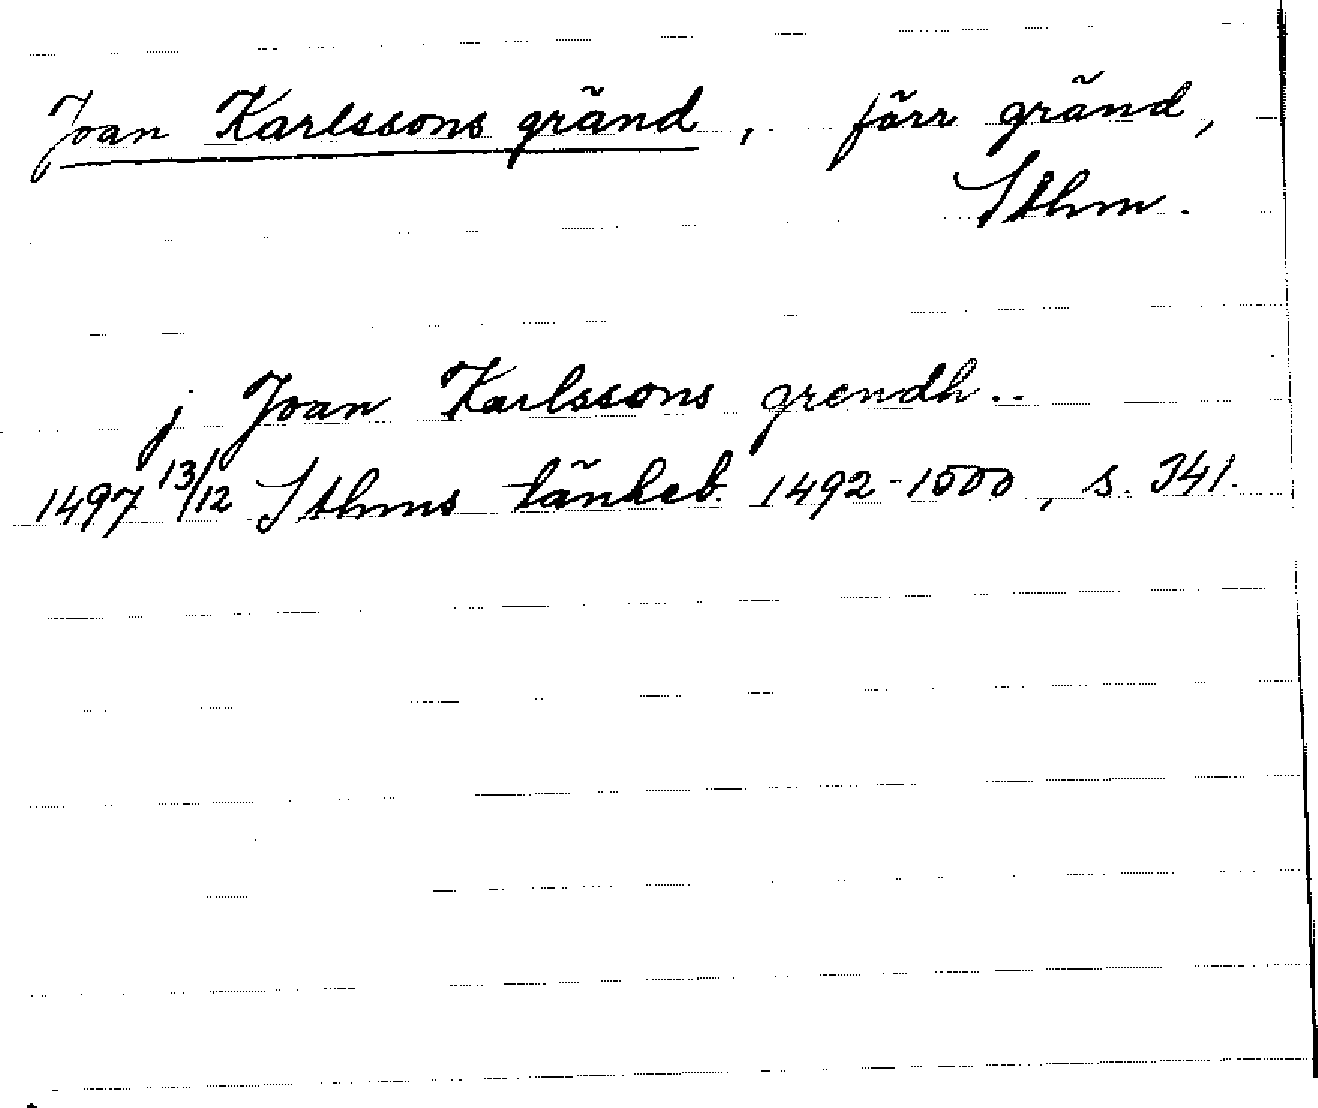 Joan Karlssons gränd, förr gränd,
Sthm.
j Joan Karlssons grendh..
1497 13/12 Sthms tänkeb. 1492-1500, s. 341.